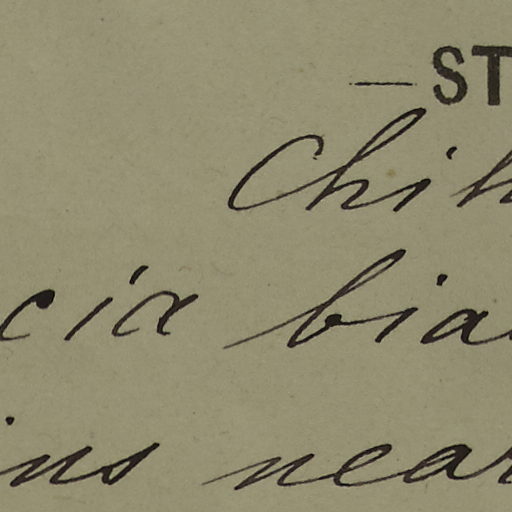 —ST
Chih
cia bia
ins near